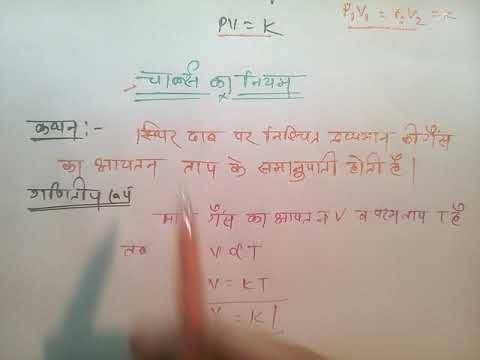 PV = K
P₁V₁ = P₂V₂ = K
चार्ल्स का नियम
कथन :- स्थिर दाब पर निश्चित द्रव्यमान की गैस
का आयतन ताप के समानुपाती होती है।
गणितीय रूप
गैस का आयतन V व परम ताप T है
तब V ∝ T
V = KT
V = K